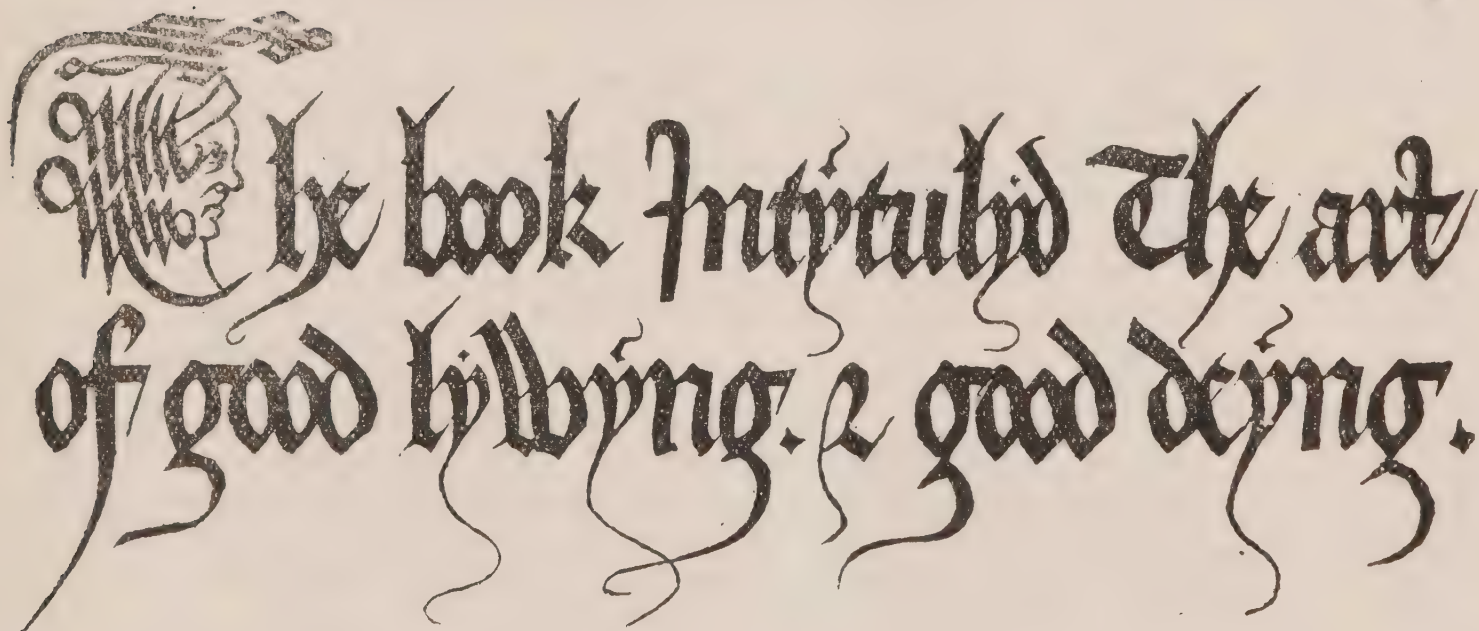 The book Intytulyd The art
of good lywyng. & good deyng.